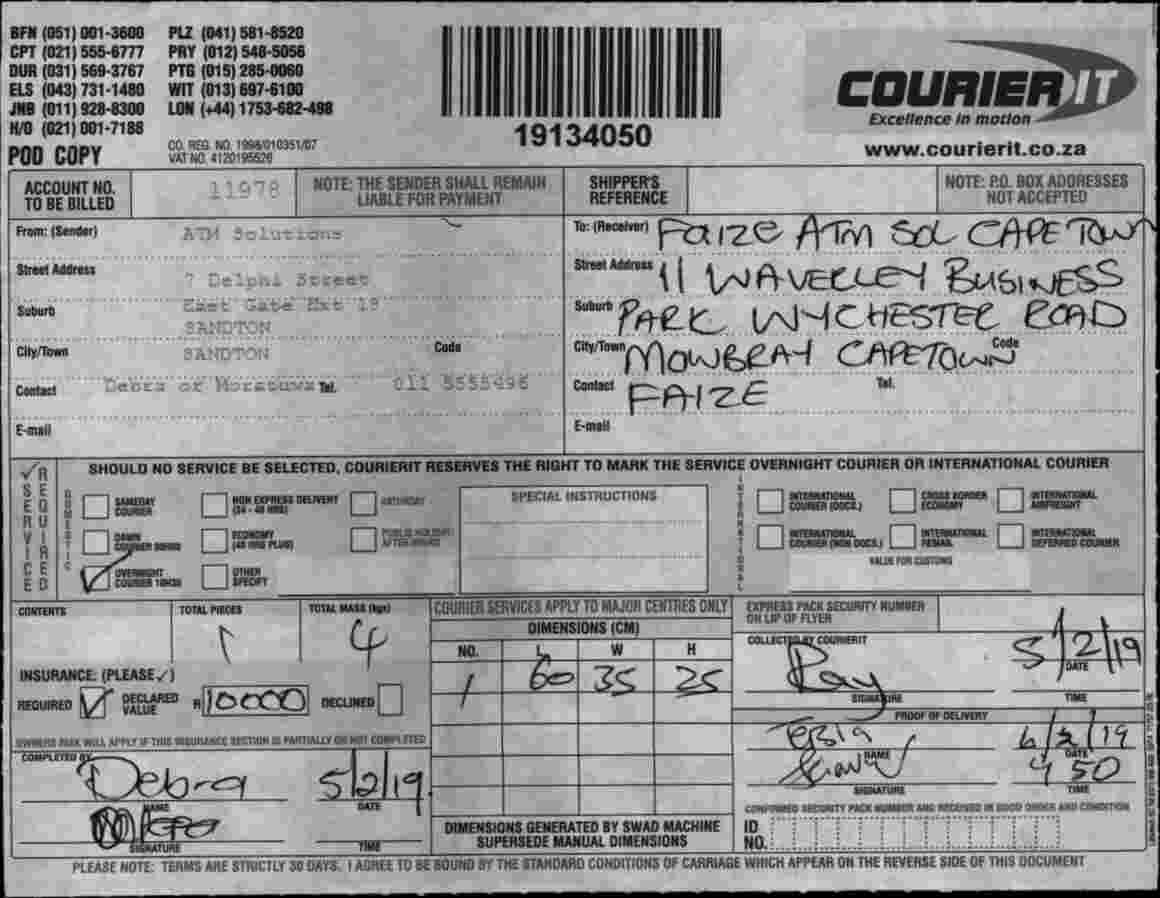 BFN (051) 001-3600 PLZ (041) 581-8520
CPT (021) 555-6777 PRY (012) 548-5056
DUR (031) 569-3767 PTG (015) 285-0060
ELS (043) 731-1480 WIT (013) 697-6100
JNB (011) 928-8300 LON (+44) 1753-682-498
H/O (021) 001-7188
POD COPY
CO. REG. NO. 1998/010351/07
VAT NO. 4120195526
19134050
COURIER IT
Excellence in motion
www.courierit.co.za
ACCOUNT NO. TO BE BILLED 11978
NOTE: THE SENDER SHALL REMAIN LIABLE FOR PAYMENT
SHIPPER'S REFERENCE
NOTE: P.O. BOX ADDRESSES NOT ACCEPTED
From: (Sender) ATM Solutions
Street Address 7 Delphi Street
Suburb East Gate Ext 18
SANDTON
City/Town SANDTON Code
Contact Debra or Tel. 011 5555496
E-mail
To: (Receiver) FAIZE ATM SOL CAPE TOWN
Street Address 11 WAVERLEY BUSINESS
Suburb PARK WYCHESTER ROAD
City/Town MOWBRAY CAPETOWN Code
Contact FAIZE Tel.
E-mail
SERVICE REQUIRED
SHOULD NO SERVICE BE SELECTED, COURIERIT RESERVES THE RIGHT TO MARK THE SERVICE OVERNIGHT COURIER OR INTERNATIONAL COURIER
DOMESTIC
SAMEDAY COURIER
NON EXPRESS DELIVERY (24 - 48 HRS)
SATURDAY
DAWN COURIER
ECONOMY (48 HRS PLUS)
PUBLIC HOLIDAY/ AFTER HOURS
OVERNIGHT COURIER 10H30
OTHER SPECIFY
SPECIAL INSTRUCTIONS
INTERNATIONAL
INTERNATIONAL COURIER (DOCS.)
CROSS BORDER ECONOMY
INTERNATIONAL AIRFREIGHT
INTERNATIONAL COURIER (NON DOCS.)
INTERNATIONAL REMAIL
INTERNATIONAL DEFERRED COURIER
VALUE FOR CUSTOMS
CONTENTS
TOTAL PIECES 1
TOTAL MASS (kgs) 4
INSURANCE: (PLEASE ✓)
REQUIRED ✓ DECLARED VALUE R 10000 DECLINED
OWNERS RISK WILL APPLY IF THIS INSURANCE SECTION IS PARTIALLY OR NOT COMPLETED
COMPLETED BY
Debra 5/2/19
NAME DATE
SIGNATURE TIME
COURIER SERVICES APPLY TO MAJOR CENTRES ONLY
DIMENSIONS (CM)
NO. L W H
1 60 35 25
DIMENSIONS GENERATED BY SWAD MACHINE
SUPERSEDE MANUAL DIMENSIONS
EXPRESS PACK SECURITY NUMBER ON LIP OF FLYER
COLLECTED BY COURIERIT
Ray 5/2/19
DATE
SIGNATURE TIME
PROOF OF DELIVERY
6/2/19
NAME DATE
SIGNATURE TIME
CONFIRMED SECURITY PACK NUMBER AND RECEIVED IN GOOD ORDER AND CONDITION
ID NO.
PLEASE NOTE: TERMS ARE STRICTLY 30 DAYS. I AGREE TO BE BOUND BY THE STANDARD CONDITIONS OF CARRIAGE WHICH APPEAR ON THE REVERSE SIDE OF THIS DOCUMENT